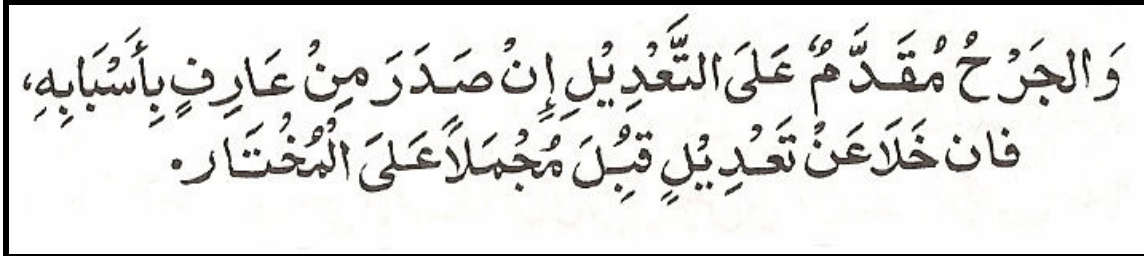 وَالجَرْحُ مُقَدَّمٌ عَلَى التَّعْدِيْلِ إِنْ صَدَرَ مِنْ عَارِفٍ بِأَسْبَابِهِ،
فان خَلَا عَنْ تَعْدِيْلٍ قَبِلَ مُجْمَلاً عَلَى الْمُخْتَار۰